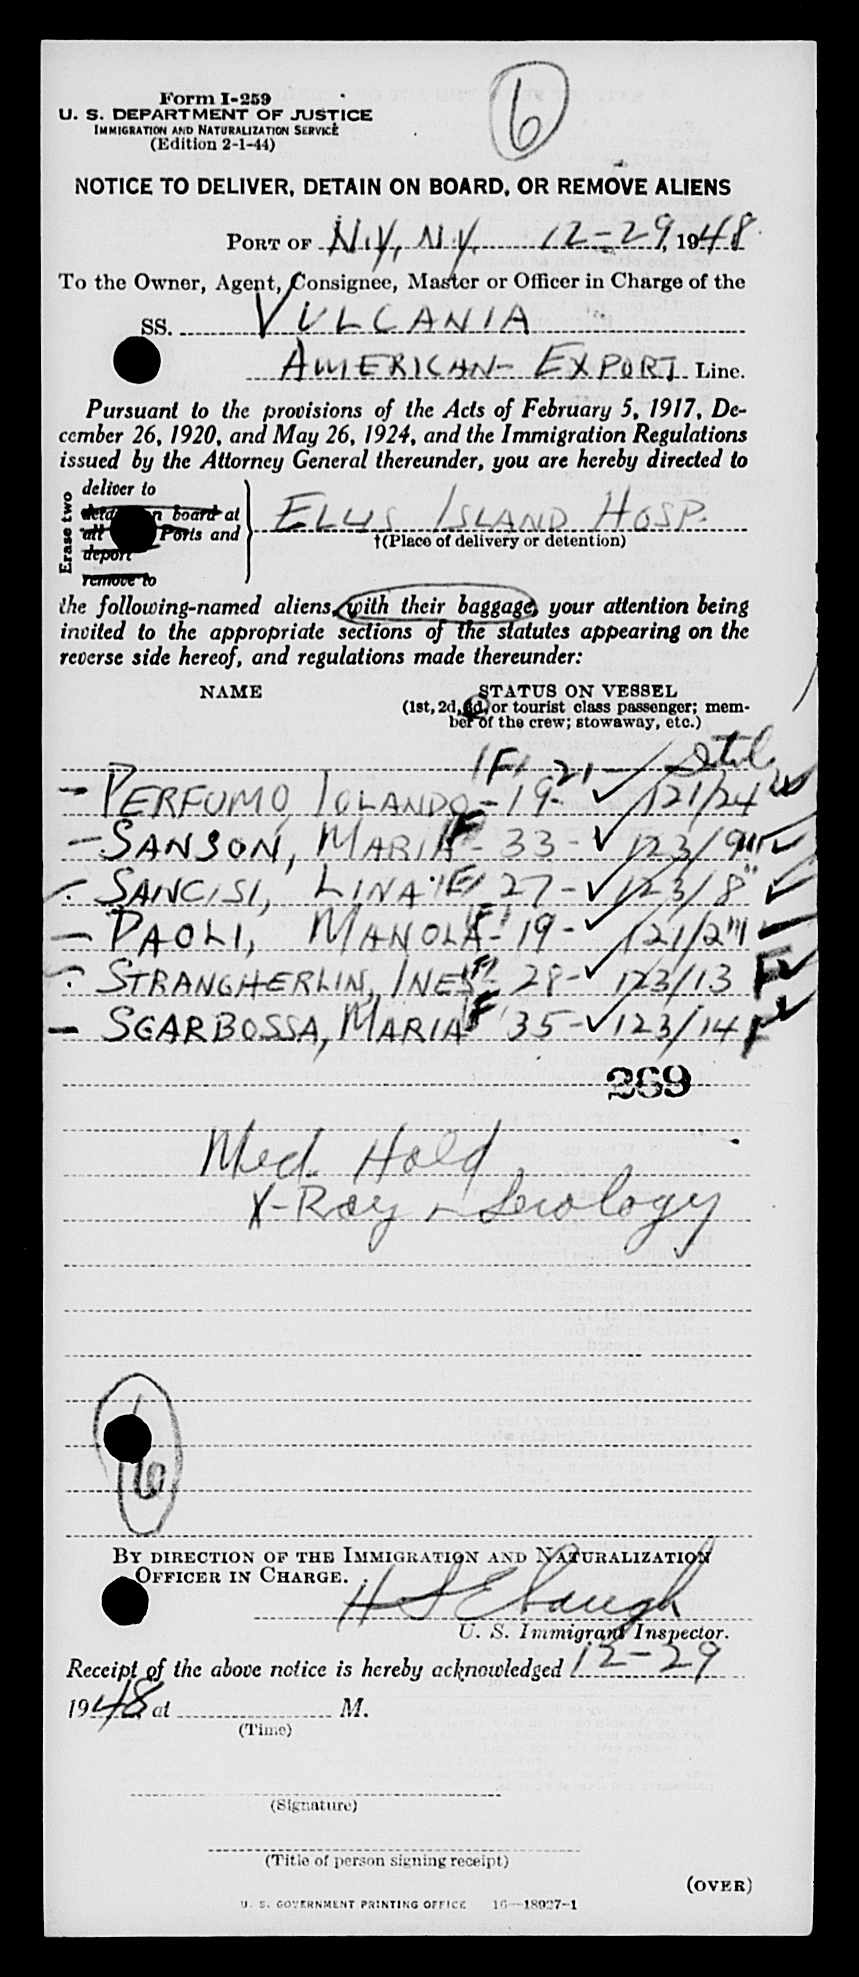 6
Form I-259
U. S. DEPARTMENT OF JUSTICE
IMMIGRATION AND NATURALIZATION SERVICE
(Edition 2-1-44)
NOTICE TO DELIVER, DETAIN ON BOARD, OR REMOVE ALIENS
PORT OF N.Y, N.Y. 12-29, 1948
To the Owner, Agent, Consignee, Master or Officer in Charge of the
SS. VULCANIA
AMERICAN-EXPORT Line.
Pursuant to the provisions of the Acts of February 5, 1917, De-
cember 26, 1920, and May 26, 1924, and the Immigration Regulations
issued by the Attorney General thereunder, you are hereby directed to
Erase two
deliver to
on board at
all Ports and
deport
remove to
ELLIS ISLAND HOSP.
†(Place of delivery or detention)
the following-named aliens, with their baggage, your attention being
invited to the appropriate sections of the statutes appearing on the
reverse side hereof, and regulations made thereunder:
NAME STATUS ON VESSEL
(1st, 2d, 3d, or tourist class passenger; mem-
ber of the crew; stowaway, etc.)
"F" 21
- PERFUMO, IOLANDO - 19 - ✓ 121/24
- SANSON, MARIA "F" - 33 - ✓ 123/9 ✓
SANCISI, LINA "F" 27 - ✓ 123/8 ✓
- PAOLI, MANOLA "F" 19 - ✓ 121/2
STRANGHERLIN, INES "F" 28 - ✓ 123/13 F ✓
- SGARBOSSA, MARIA "F" 35 - ✓ 123/14 F ✓
269
Med. Hold
X-Ray & Serology
6
BY DIRECTION OF THE IMMIGRATION AND NATURALIZATION
OFFICER IN CHARGE.
H S Ebaugh
U. S. Immigrant Inspector.
Receipt of the above notice is hereby acknowledged 12-29
1948 at M.
(Time)
(Signature)
(Title of person signing receipt)
(OVER)
U. S. GOVERNMENT PRINTING OFFICE 16—18927-1